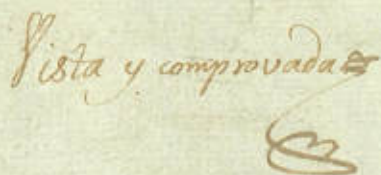 Vista y comprovada